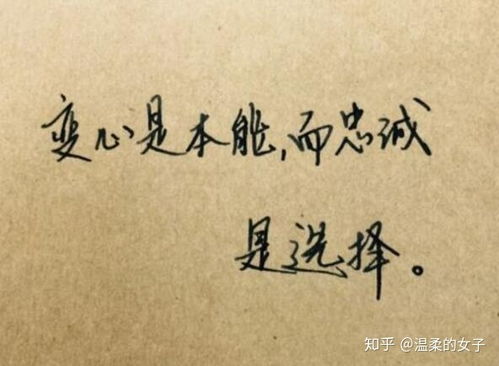 变心是本能,而忠诚
是选择。
知乎 @温柔的女子